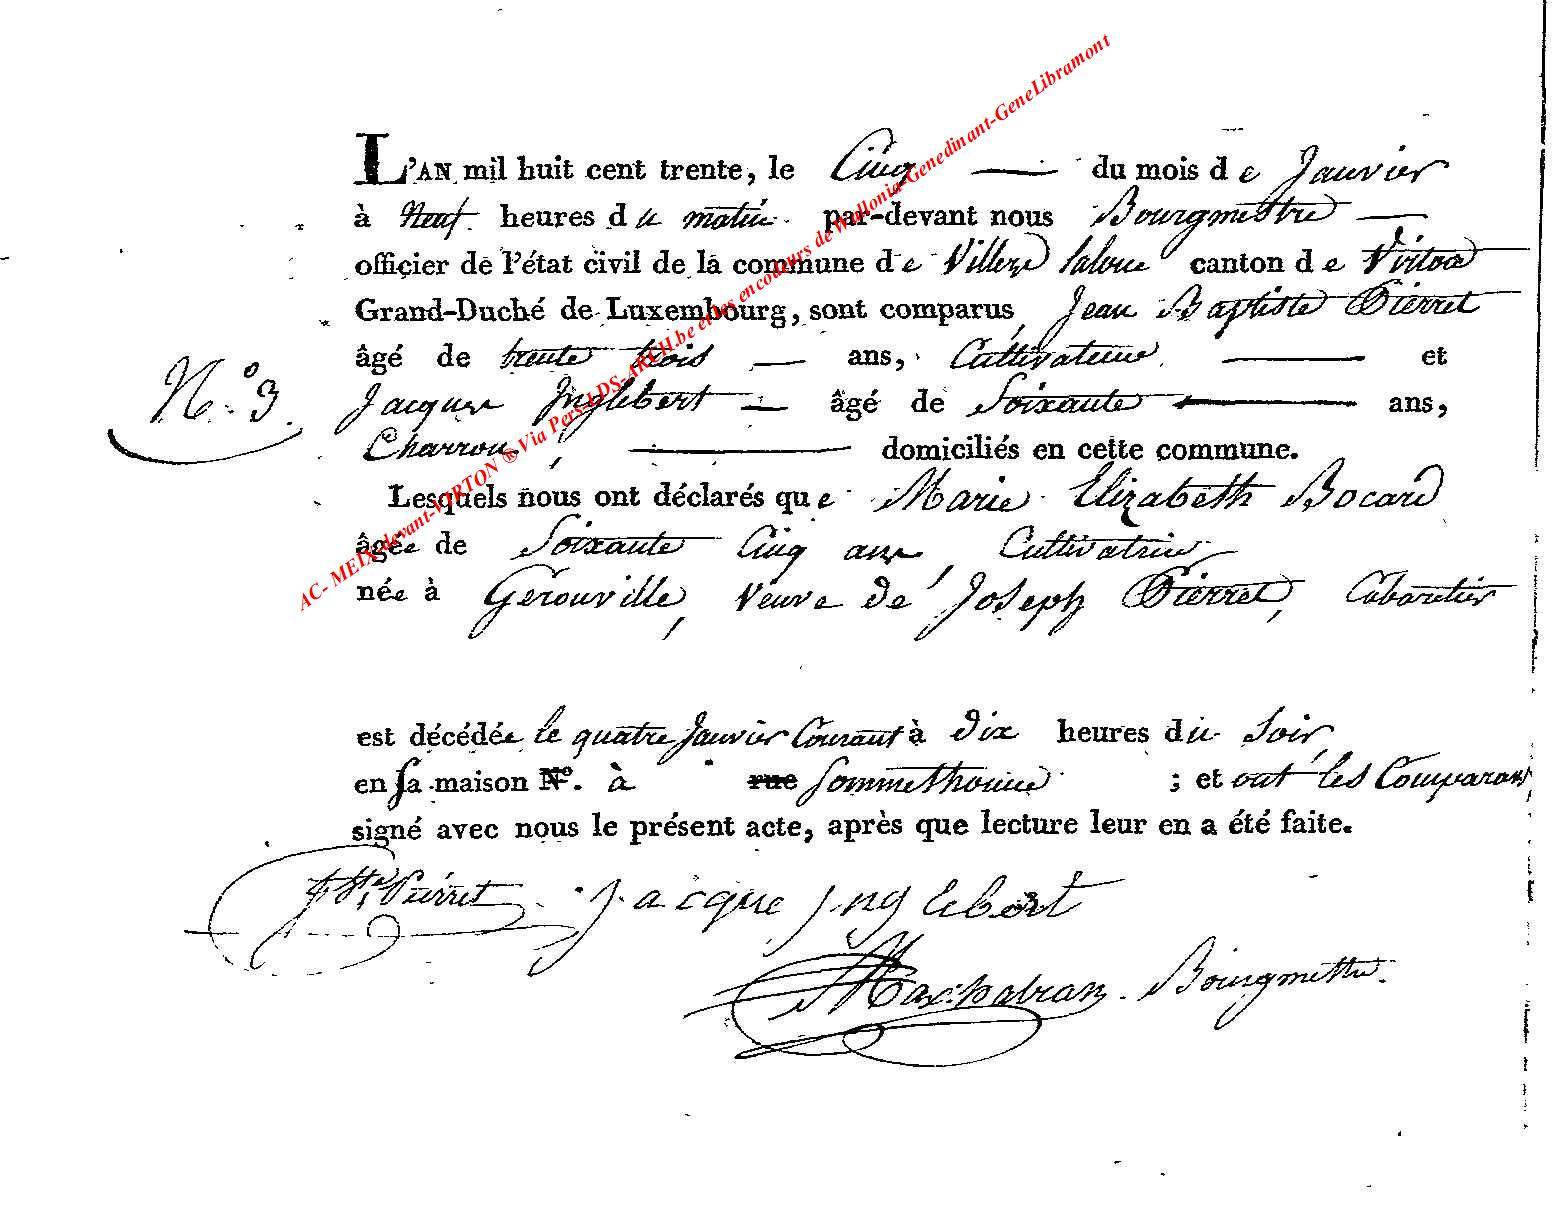 L'AN mil huit cent trente, le Cinq du mois de Janvier
à Neuf heures du matin par-devant nous Bourgmestre
officier de l'état civil de la commune de Villers laloue canton de Virton
Grand-Duché de Luxembourg, sont comparus Jean Baptiste Pierret
âgé de trente trois ans, Cultivateur et
N.° 3.
Jacques Inglebert âgé de Soixante ans,
Charron, domiciliés en cette commune.
Lesquels nous ont déclarés que Marie Elizabeth Bocard
âgée de Soixante Cinq ans, Cultivatrice
née à Gérouville, Veuve de Joseph Pierret, Cabaretier
est décédée le quatre Janvier Courant à Dix heures du Soir
en sa maison N°. à rue Sommethonne ; et ont les Comparans
signé avec nous le présent acte, après que lecture leur en a été faite.
Pierret Jacque Inglebert
Bourgmettre.
AC- MEIX-devant-VIRTON ® Via Pers-LDS-ARCH.be et les encodeurs de Wallonia-Genedinant-GeneLibramont